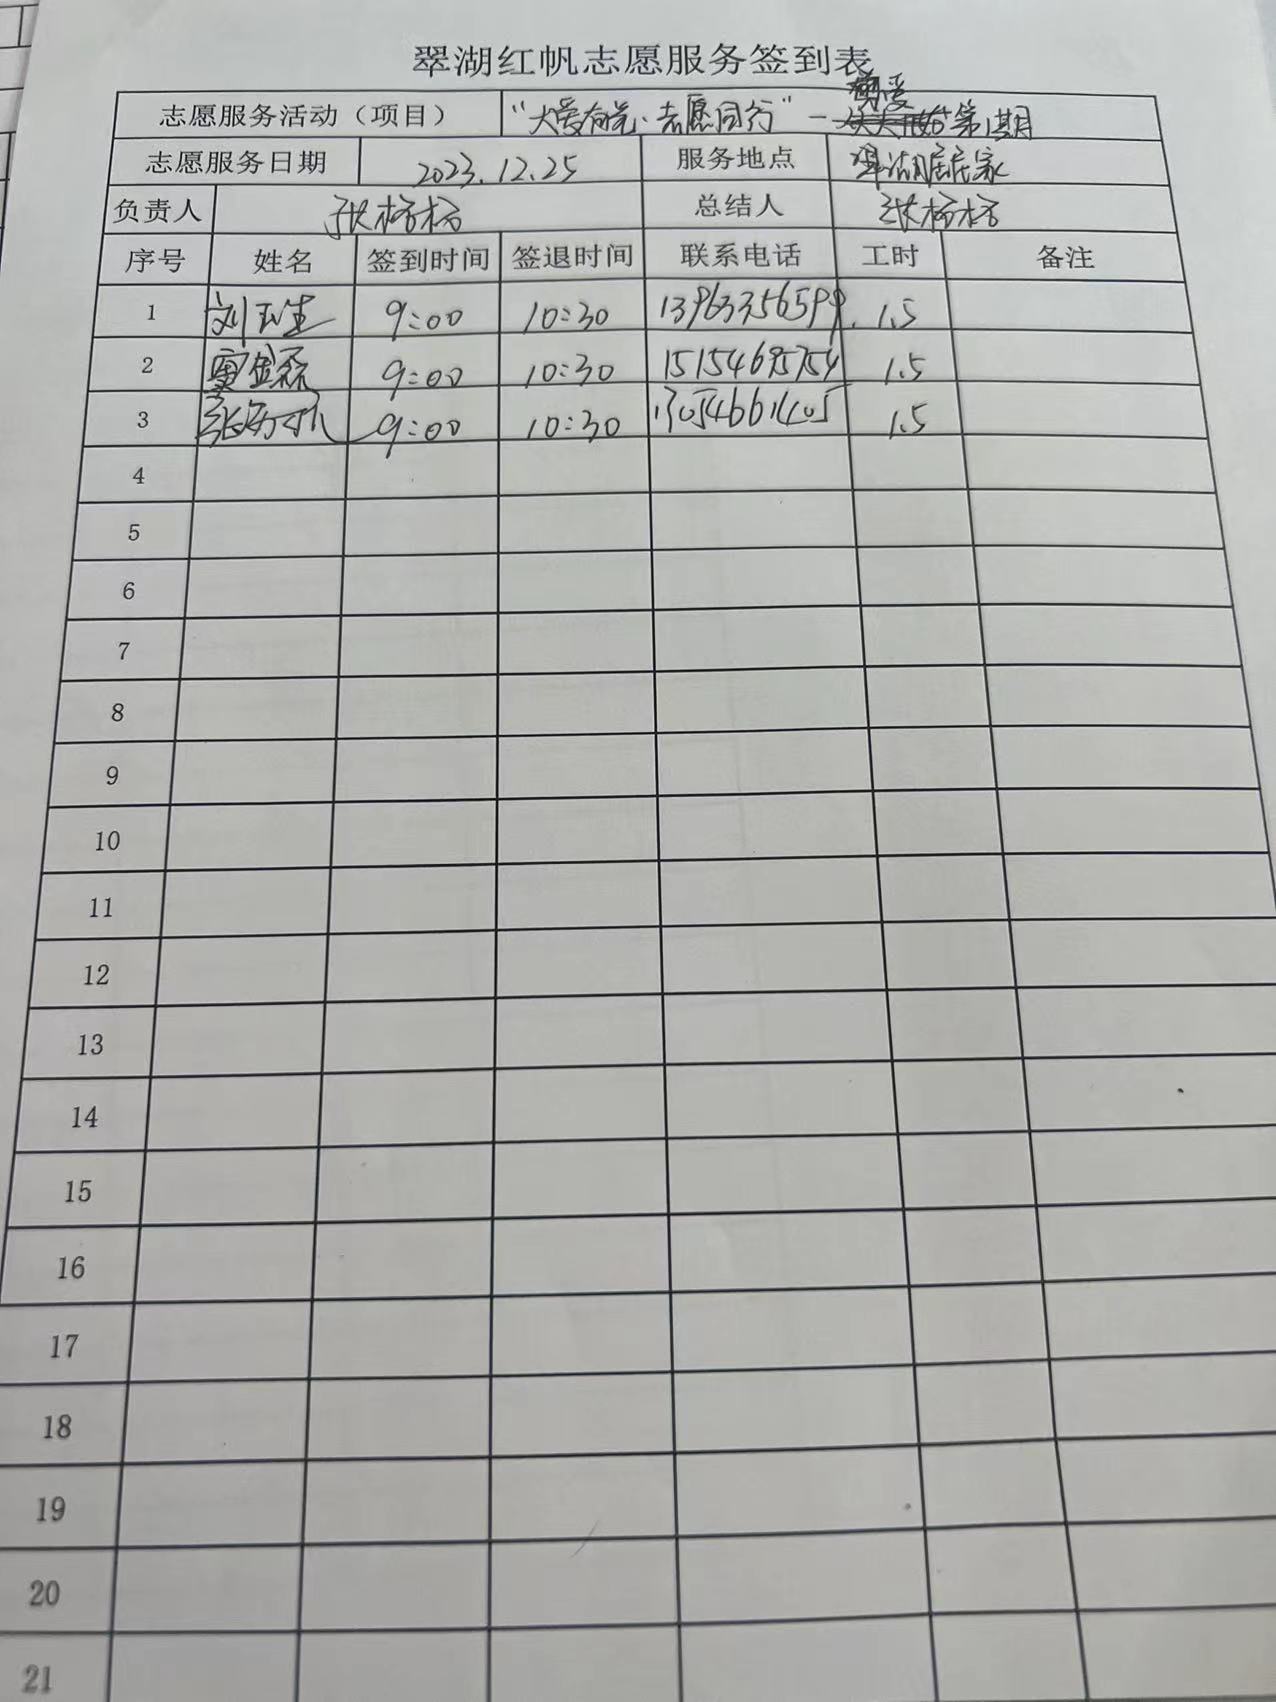 翠湖红帆志愿服务签到表
志愿服务活动（项目） “大爱有光·志愿同行”— 第1期
志愿服务日期 2023.12.25 服务地点 翠湖居居家
负责人 张杨杨 总结人 张杨杨
序号 姓名 签到时间 签退时间 联系电话 工时 备注
1 刘玉生 9:00 10:30 13963356599 1.5
2 9:00 10:30 15154695754 1.5
3 9:00 10:30 1.5
4
5
6
7
8
9
10
11
12
13
14
15
16
17
18
19
20
21